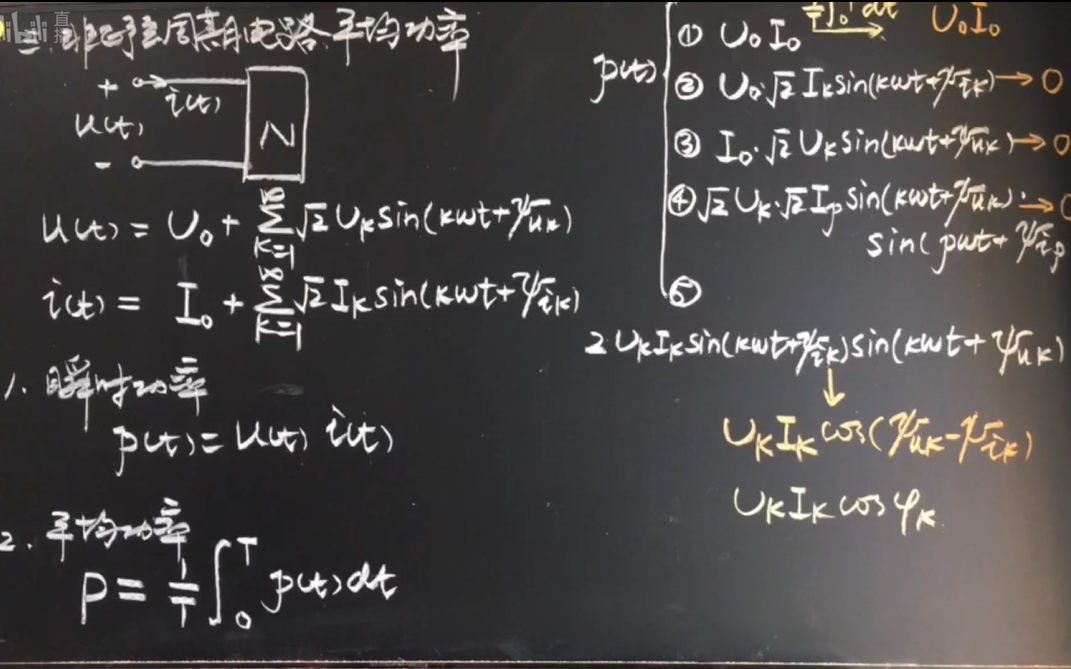 二. 非正弦周期电路平均功率
+
i(t)
u(t)
N
-
u(t) = U₀ + ∑_{k=1}^{∞} √2 U_k sin(kωt+ψ_{uk})
i(t) = I₀ + ∑_{k=1}^{∞} √2 I_k sin(kωt+ψ_{ik})
1. 瞬时功率
p(t) = u(t) i(t)
2. 平均功率
P = 1/T ∫₀^T p(t)dt
p(t)
① U₀I₀ → U₀I₀
② U₀·√2 I_k sin(kωt+ψ_{ik}) → 0
③ I₀·√2 U_k sin(kωt+ψ_{uk}) → 0
④ √2 U_k·√2 I_p sin(kωt+ψ_{uk})· → 0
sin(pωt+ ψ_{ip}
⑤
2 U_k I_k sin(kωt+ψ_{ik}) sin(kωt+ ψ_{uk})
↓
U_k I_k cos(ψ_{uk}-ψ_{ik})
U_k I_k cos φ_k